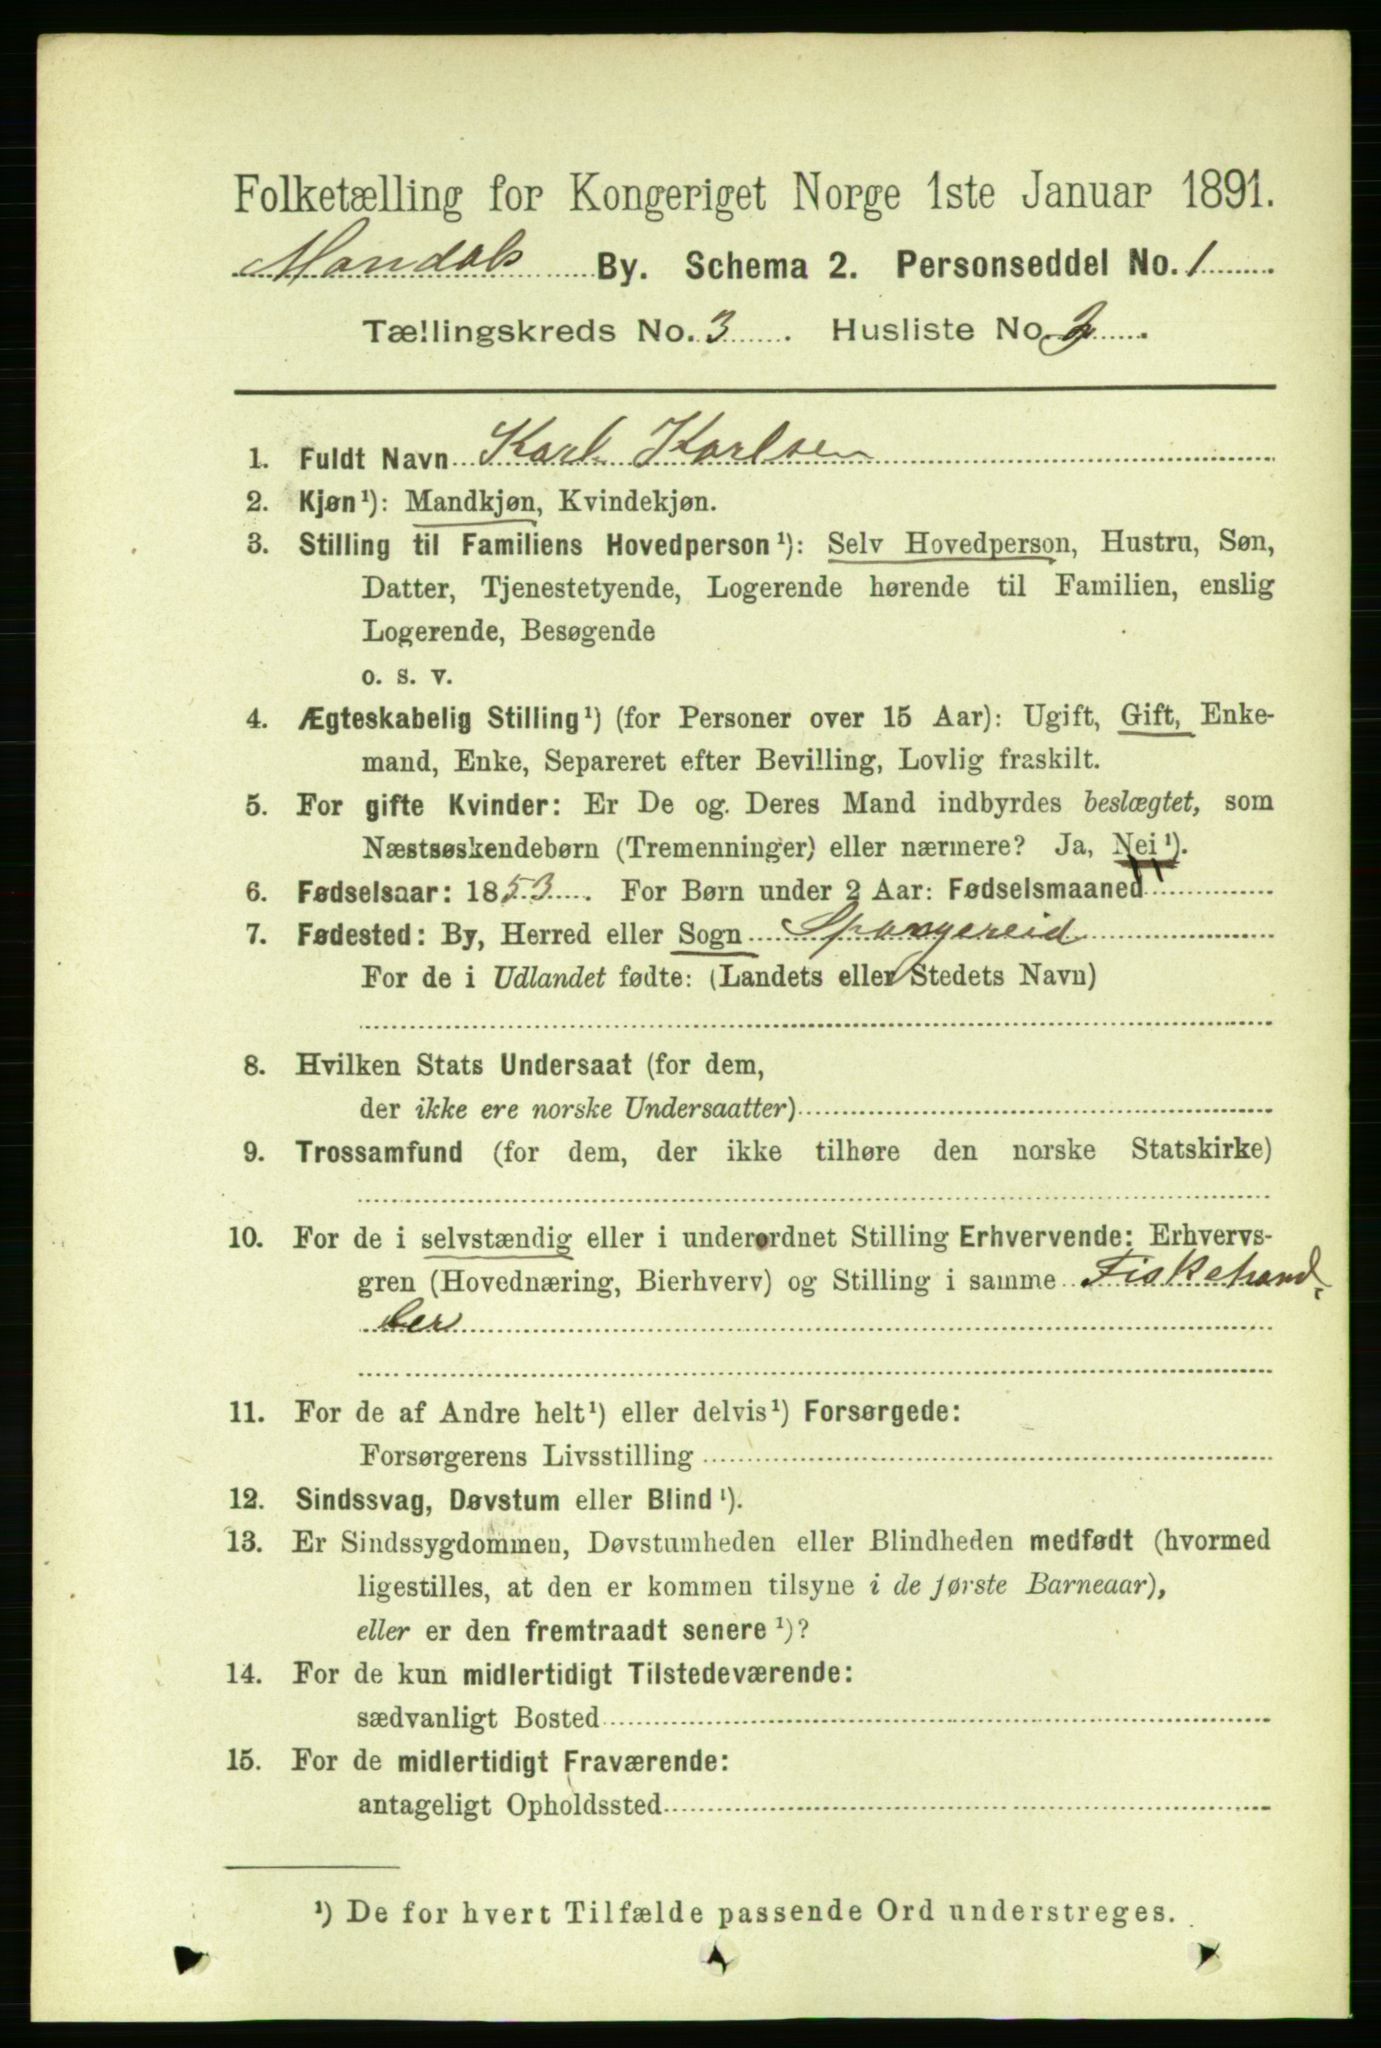 Folketælling for Kongeriget Norge 1ste Januar 1891.
Mandals By. Schema 2. Personseddel No. 1
Tællingskreds No. 3. Husliste No. 2.
1. Fuldt Navn Karl Karlsen
2. Kjøn¹): Mandkjøn, Kvindekjøn.
3. Stilling til Familiens Hovedperson¹): Selv Hovedperson, Hustru, Søn,
Datter, Tjenestetyende, Logerende hørende til Familien, enslig
Logerende, Besøgende
o. s. v.
4. Ægteskabelig Stilling¹) (for Personer over 15 Aar): Ugift, Gift, Enke-
mand, Enke, Separeret efter Bevilling, Lovlig fraskilt.
5. For gifte Kvinder: Er De og. Deres Mand indbyrdes beslægtet, som
Næstsøskendebørn (Tremenninger) eller nærmere? Ja, Nei¹).
6. Fødselsaar: 1853. For Børn under 2 Aar: Fødselsmaaned
7. Fødested: By, Herred eller Sogn Spangereid
For de i Udlandet fødte: (Landets eller Stedets Navn)
8. Hvilken Stats Undersaat (for dem,
der ikke ere norske Undersaatter)
9. Trossamfund (for dem, der ikke tilhøre den norske Statskirke)
10. For de i selvstændig eller i underordnet Stilling Erhvervende: Erhvervs-
gren (Hovednæring, Bierhverv) og Stilling i samme Fiskehand-
ler
11. For de af Andre helt¹) eller delvis¹) Forsørgede:
Forsørgerens Livsstilling
12. Sindssvag, Døvstum eller Blind¹).
13. Er Sindssygdommen, Døvstumheden eller Blindheden medfødt (hvormed
ligestilles, at den er kommen tilsyne i de første Barneaar),
eller er den fremtraadt senere¹)?
14. For de kun midlertidigt Tilstedeværende:
sædvanligt Bosted
15. For de midlertidigt Fraværende:
antageligt Opholdssted
¹) De for hvert Tilfælde passende Ord understreges.